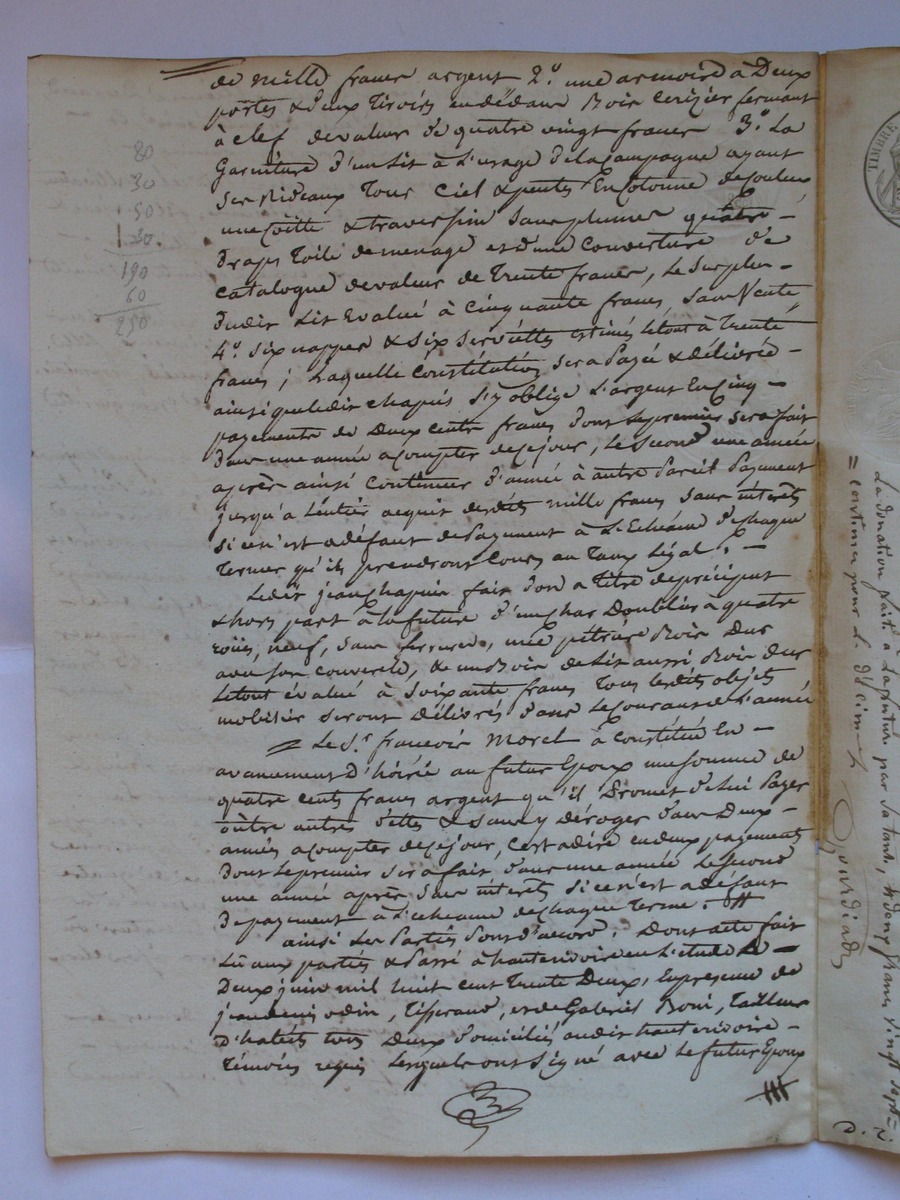 de mille francs argent 2.° une armoire à Deux
portes & Deux Tiroirs endedans Bois Cerizier fermant
à clef de valeur de quatre vingt francs 3.° La
Garniture d'un Lit à L'usage de la Campagne ayant
ses Rideaux Tour Ciel & pentes En Cotonne de Couleur
une Coëtte & traversin sans plumes quatre –
Draps Toile de menage et d'une Couverture de
Catalogne de valeur de Trente francs, Le Surplus –
Dudit Lit Evalué à Cinquante francs, sans Vente
4.° six nappes & six serviettes estimés Letout à Trente
francs ; Laquelle Constitution sera Payé & délivrée –
ainsi que ledit Chapuis s'y oblige L'argent En Cinq –
payements de Deux Cents francs dont Le premier sera fait
Dans une année a Compter de ce jour, Le Second une année
après ainsi Continuer D'année à autre Pareil Payement
jusqu'a L'entier acquit desdits mille francs sans intérêts
si ce n'est a défaut de Payement à L'Echéance De chaque
Termes qu'ils prendront Cours au Taux Légal . –
Ledit jean Chapuis fait don a titre de préciput
& hors part à la future d'un Char Doubliés à quatre
roües, neuf, sans ferrures, une pétrière Bois Dur
avec son couvercle, & un Bois de Lit aussi Bois dur
Letout évalué à Soixante francs Tous lesdits objets
mobilier seront Délivrés Dans Le Courant de L'année
= Le S.r francois Morel à Constitué En –
avancement D'hoirie au futur Epoux une somme de
quatre Cents francs argent qu'il Promet de lui Payer
outre autres dettes & sans y déroger dans Deux –
années a Compter de ce jour, C'est adire en deux payements
Dont Le premier sera fait Dans une année Le second
une année après sans intérêts si ce n'est a défaut
De payement à L'echeance de chaque Terme . #
ainsi Les Parties Sont d'accord, Dont acte fait
Lû aux parties & Passé à hauterivoire en L'etude Le –
Deux juin mil huit cent Trente Deux, En présence de
jean denis odin, Tisserand, et de Gabriel Boni, Tailleur
D'habits tous Deux Domiciliés audit hauterivoire –
Témoins requis Lesquels ont Signé avec Le futur Epoux
80
30
50
30
190
60
250
TIMBRE
La donation faite a La future par Sa tante, & de francs vingt sept
= centimes pour L
Gourdiad
D. 2.